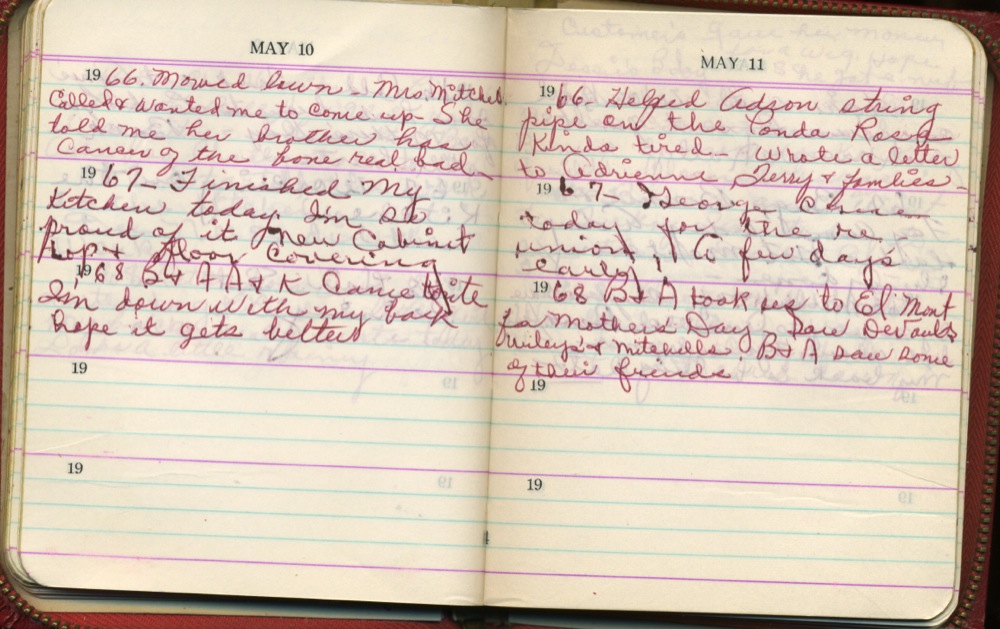 MAY 10
1966. Mowed Lawn - Mrs. Mitchel
Called & wanted me to come up - She
told me her brother has
Cancer of the bone real bad -
1967 - Finished My
Kitchen today. Im so
proud of it New Cabinet
top + floor Covering
1968 B & A A & K Came
Im down with my back
hope it gets better
19
19
MAY 11
1966 - Helped string
pipe on the Ponda Rosa
Kinda tired - Wrote a letter
to Adrienne Terry & families -
1967 - George Came
today for the re
union, A few days
early
1968 B & A took us to El Mont
for Mothers Day - Saw DeVaults
& Mitchells. B & A saw some
of their friends
19
19